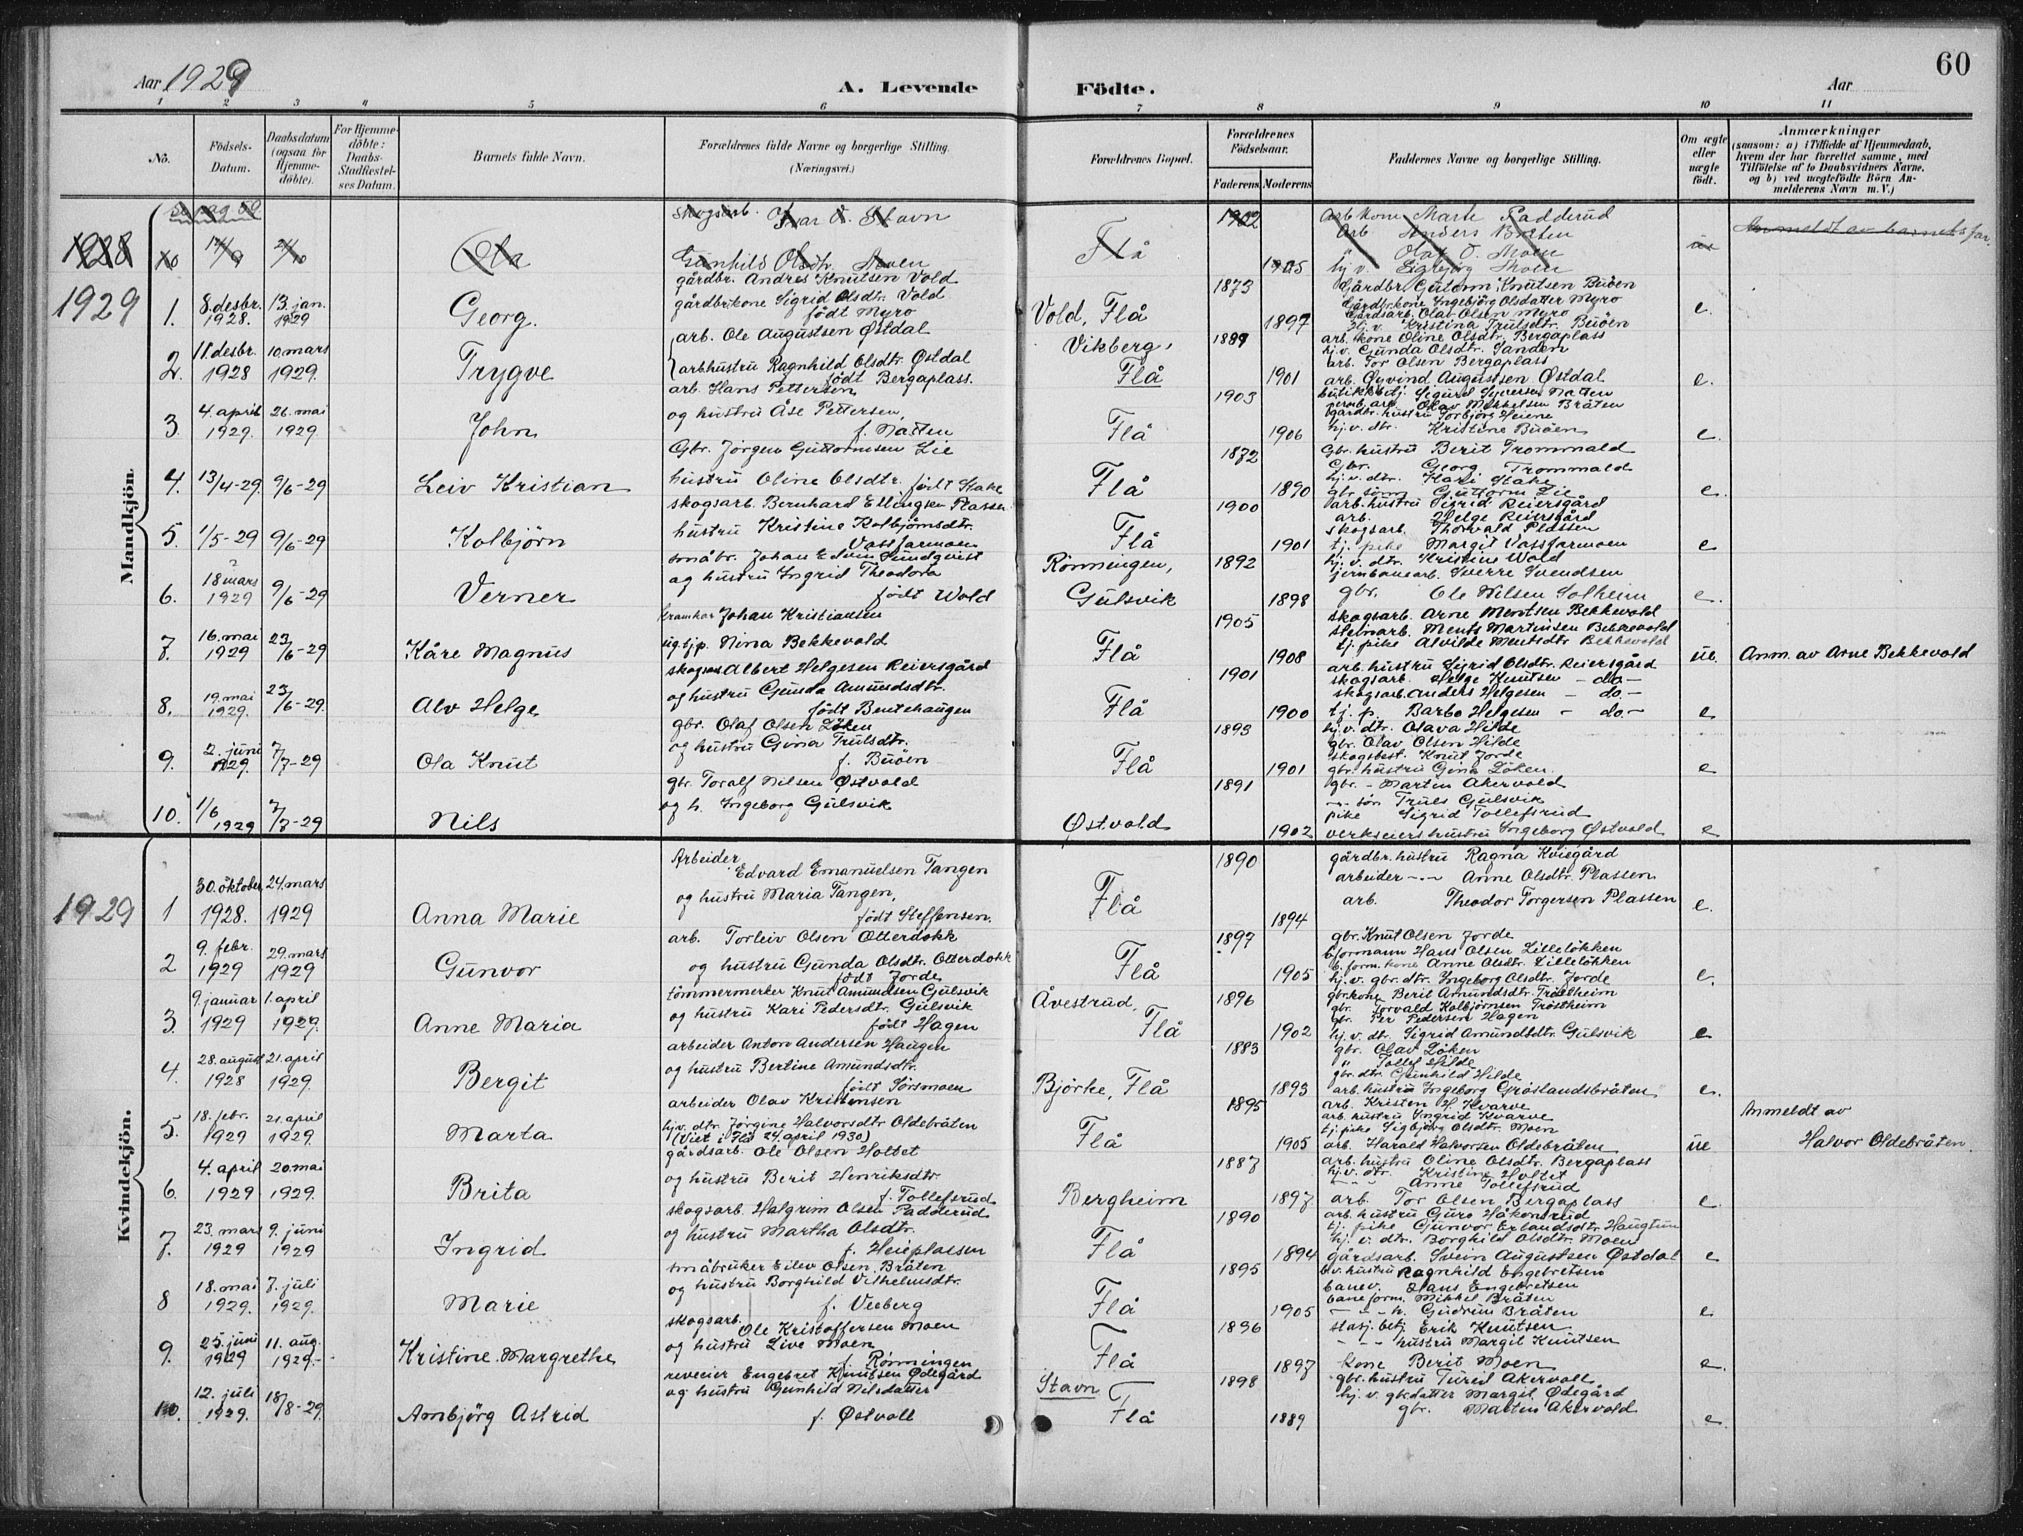 60
Aar 1929
A. Levende Födte.
Aar
1 2 3 4 5 6 7 8 9 10 11
No.
Födsels-Datum.
Daabsdatum (ogsaa for Hjemmedöbte).
For Hjemmedöbte: Daabs-Stadfæstelses Datum.
Barnets fulde Navn.
Forældrenes fulde Navne og borgerlige Stilling.
(Næringsvei.)
Forældrenes Bopæl.
Forældrenes Födselsaar.
Faderens Moderens
Faddernes Navne og borgerlige Stilling.
Om ægte eller uægte födt.
Anmærkninger
(saasom: a) i Tilfælde af Hjemmedaab, hvem der har forrettet samme, med Tilföielse af to Daabsvidners Navne, og b) ved uægtefödte Börn Anmelderens Navn m. V.)
Mandkjön.
1928
Ola
skogsarb. Ivar O. Stavn
Gunhild Olsdtr. Moen
Flå
1902
1905
arb kone Marit Padderud
arb Anders Bråten
Olaf O. Moen
hj v. Eigbjørg Moen
ue
Anmeldt av barnets far.
1929
1. 8. desbr. 1928. 13. jan. 1929
Georg.
gårdbr. Andres Knutsen Vold
gårdbrkone Sigrid Olsdtr. Vold
født Myro
Vold, Flå
1873
1897
Gårdbr. Guttorm Knutsen Buøen
Gårdbr.kone Ingebjörg Olsdatter Myro
Gårdsarb. Olav Olsen Myro
Hj. v. Kristina Trulsdtr. Buöen
e.
2. 11. desbr. 1928 10 mars 1929.
Trygve
arb. Ole Augustsen Østdal
arbhustru Ragnhild Olsdtr. Østdal
født Bergaplass.
Vikberg, Flå
1889
1901
arb. kone Oline Olsdtr. Bergaplass
hj.v. Gunda Olsdtr. Sanden
arb. Tor Olsen Bergaplass
arb. Øyvind Augustsen Østdal
e.
3. 4. april 1929. 26. mai 1929.
John
arb. Hans Pettersen
og hustru Åse Pettersen,
f. Natten
Flå
1903
1906
butikkbetj. Sigurd Syversen Natten
jernb. arb. Olav Mikkelsen Bråten
gårdbr. hustru Torbjörg Heiene
hj. v. dtr. Kristine Buöen
e.
4. 13/4-29. 9/6-29
Leiv Kristian
Gbr. Jörgen Guttormsen Lie
hustru Oline Olsdtr. født Stake
Flå
1872
1890
Gbr. hustru Berit Trommald
Gbr. Georg Trommald
hj.v. dtr. Kari Stake
gbr. sønn Guttorm Lie
e.
5. 1/5-29 9/6-29
Kolbjörn
skogsarb. Bernhard Ellingsen Plassen
hustru Kristine Kolbjørnsdtr.
Vassfarmoen
Flå
1900
1901
arb. hustru Sigrid Reiersgård
arb. Helge Reiersgård
skogsarb. Thorvald Plassen
tj. pike Margit Vassfarmoen
e
6. 18 mars 1929 9/6-29
Verner
småbr. Johan Edvin Sundqvist
og hustru Ingrid Theodora
født Wold
Rönningen, Gulsvik
1892
1898
hj. v. dtr. Kristine Wold
jernbanearb. Sverre Svendsen
gbr. Ole Nilsen Solheim
e.
7. 16. mai 1929 23/6-29
Kåre Magnus
kramkar Johan Kristiansen
ug. tjp. Nina Bekkevold
Flå
1905
1908
skogsarb. Arne Mentsen Bekkevold
steinarb. Ments Martinsen Bekkevold
tj. pike Alvilde Mentsdtr Bekkevold
ue.
Anm. av Arne Bekkevold
8. 19. mai 1929. 23/6-29.
Alv Helge
skogsarb Albert Helgesen Reiersgård
og hustru Gunda Amundsdtr.
født Bentehaugen
Flå
1901
1900
arb. hustru Sigrid Olsdtr. Reiersgård
skogsarb. Helge Knutsen - do -
skogsarb. Anders Helgesen - do. -
tj. p. Barbo Helgesen - do. -
e
9. 2. juni 1929. 7/7-29
Ola Knut
gbr. Olaf Olsen Löken
og hustru Gina Trulsdtr.
f. Buöen
Flå
1893
1901
hj. v. dtr. Olava Hilde
gbr. Olav Olsen Hilde
skogsbest. Knut Jorde
gbr. hustru Gina Löken.
e
10. 1/6 1929 7/7-29
Nils
gbr. Toralf Nilsen Østvold
og h. Ingeborg Gulsvik
Østvold
1891
1902
gbr. - Marten Akervold
-"- sön Truls Gulsvik
pike Sigrid Tollefsrud
verkseiers hustru Ingeborg Østvold
e
Kvindekjön.
1929
1 30. oktober 1928. 24. mars 1929
Anna Marie
Arbeider Edvard Emanuelsen Tangen
og hustru Maria Tangen,
født Steffensen.
Flå
1890
1894
gårdbr. hustru Ragna Kviegård
arbeider -"- Anne Olsdtr. Plassen
arb. Theodor Torgersen Plassen
e.
2 9. febr. 1929 29. mars 1929
Gunvor
arb. Torleiv Olsen Otterdokk
og hustru Gunda Olsdtr. Otterdokk
født Jorde
Flå
1897
1905
gbr. Knut Olsen Jorde
b.formann Hans Olsen Lilleløkken
b. form. kone Anne Olsdtr. Lilleløkken
hj. v. gbr. dtr. Ingeborg Olsdtr. Jorde
e.
3. 9. januar 1929 1. april 1929.
Anne Maria
tömmermerker Knut Amundsen Gulsvik
og hustru Kari Pedersdtr. Gulsvik
født Hagen
Åvestrud, Flå
1896
1902
gbr.kone Berit Amundsdtr. Tröstheim
gbr. Torvald Kolbjörnsen Tröstheim
gbr. Per Pedersen Hagen
hj. v. dtr. Sigrid Amundsdtr. Gulsvik
e
4. 28. august 1928 21. april 1929.
Bergit
arbeider Anton Andersen Haugen
og hustru Bertine Amundsdtr.
født Sörsmoen
Björke, Flå
1883
1893
gbr. Olav Löken
" Tollef Hilde
gbr. dtr. Gunhild Hilde
arb. hustru Ingeborg Gröslandsbråten
e.
5. 18. febr. 1929 21. april 1929.
Marta
arbeider Olav Kristensen
hj.v. dtr. Jörgine Halvorsdtr Oldebråten
(Viet i Flå 24. april 1930)
Flå
1895
1905
arb. Kristen H. Kvarve
arb. hustru Ingrid Kvarve
tj. pike Sigbjörg Olsdtr. Moen
arb. Harald Halvorsen Oldebråten
ue
Anmeldt av
Halvor Oldebråten.
6. 4. april 1929 20. mai 1929.
Brita
gårdsarb. Ole Olsen Holtet
og hustru Berit Henriksdtr.
f. Tollefsrud
Bergheim
1887
1897
arb. hustru Oline Olsdtr. Bergaplass
hj. v. dtr. Kristine Holtet
Anne Tollefsrud
arb. Tor Olsen Bergaplass
e.
7. 23. mars 1929 9. juni 1929
Ingrid
skogsarb. Halgrim Olsen Padderud
og hustru Martha Olsdtr.
f. Heieplassen
Flå
1890
1894
arb. hustru Guro Håkonsrud
tj. pike Gunvor Erlandsdtr. Haugtun
hj. v. dtr. Borghild Olsdtr. Moen
gårdsarb. Svein Augustsen Østdal
e
8 18. mai 1929. 7. juli 1929.
Marie
småbruker Eilev Olsen Bråten
og hustru Borghild Vilhelmsdtr.
f. Veeberg
Flå
1895
1905
b.v. hustru Ragnhild Engebretsen
banev. Hans Engebretsen
baneform. Mikkel Bråten
-"- h. Gudrun Bråten
e
9. 25. juni 1929 11. aug. 1929.
Kristine Margrethe
skogsarb. Ole Kristoffersen Moen
og hustru Live Moen
f. Rönningen
Flå
1896
1897
stasj. betj. Erik Knutsen
-"- hustru Margit Knutsen
kone Berit Moen
e.
10. 12. juli 1929. 18/8-29.
Ambjörg Astrid
reveier Engebret Knutsen Ødegård
og hustru Gunhild Nilsdatter
f. Østvoll
Stavn Flå
1898
1889
gbr. hustru Turid Akervoll
hj. v. gb.datter Margit Ødegård
gbr. Marten Akervold
e